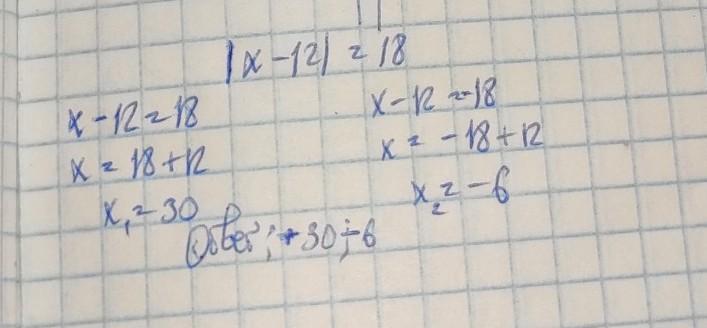 |x-12| = 18
x-12=18
x = 18+12
x₁=30
x-12=-18
x = -18+12
x₂=-6
Ответ: 30; -6